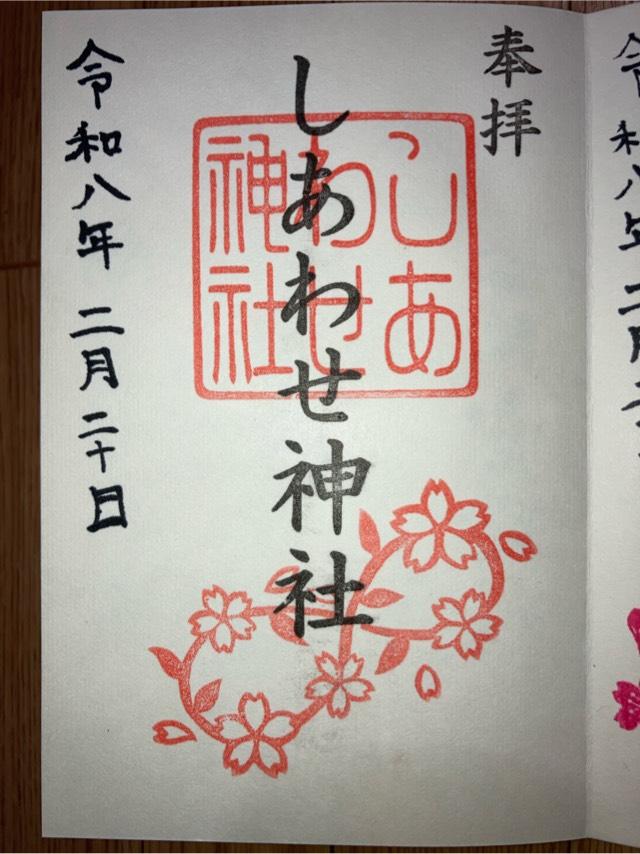 奉拝
しあわせ神社
しあ
わせ
神社
令和八年 二月二十日
令和八年 二月二